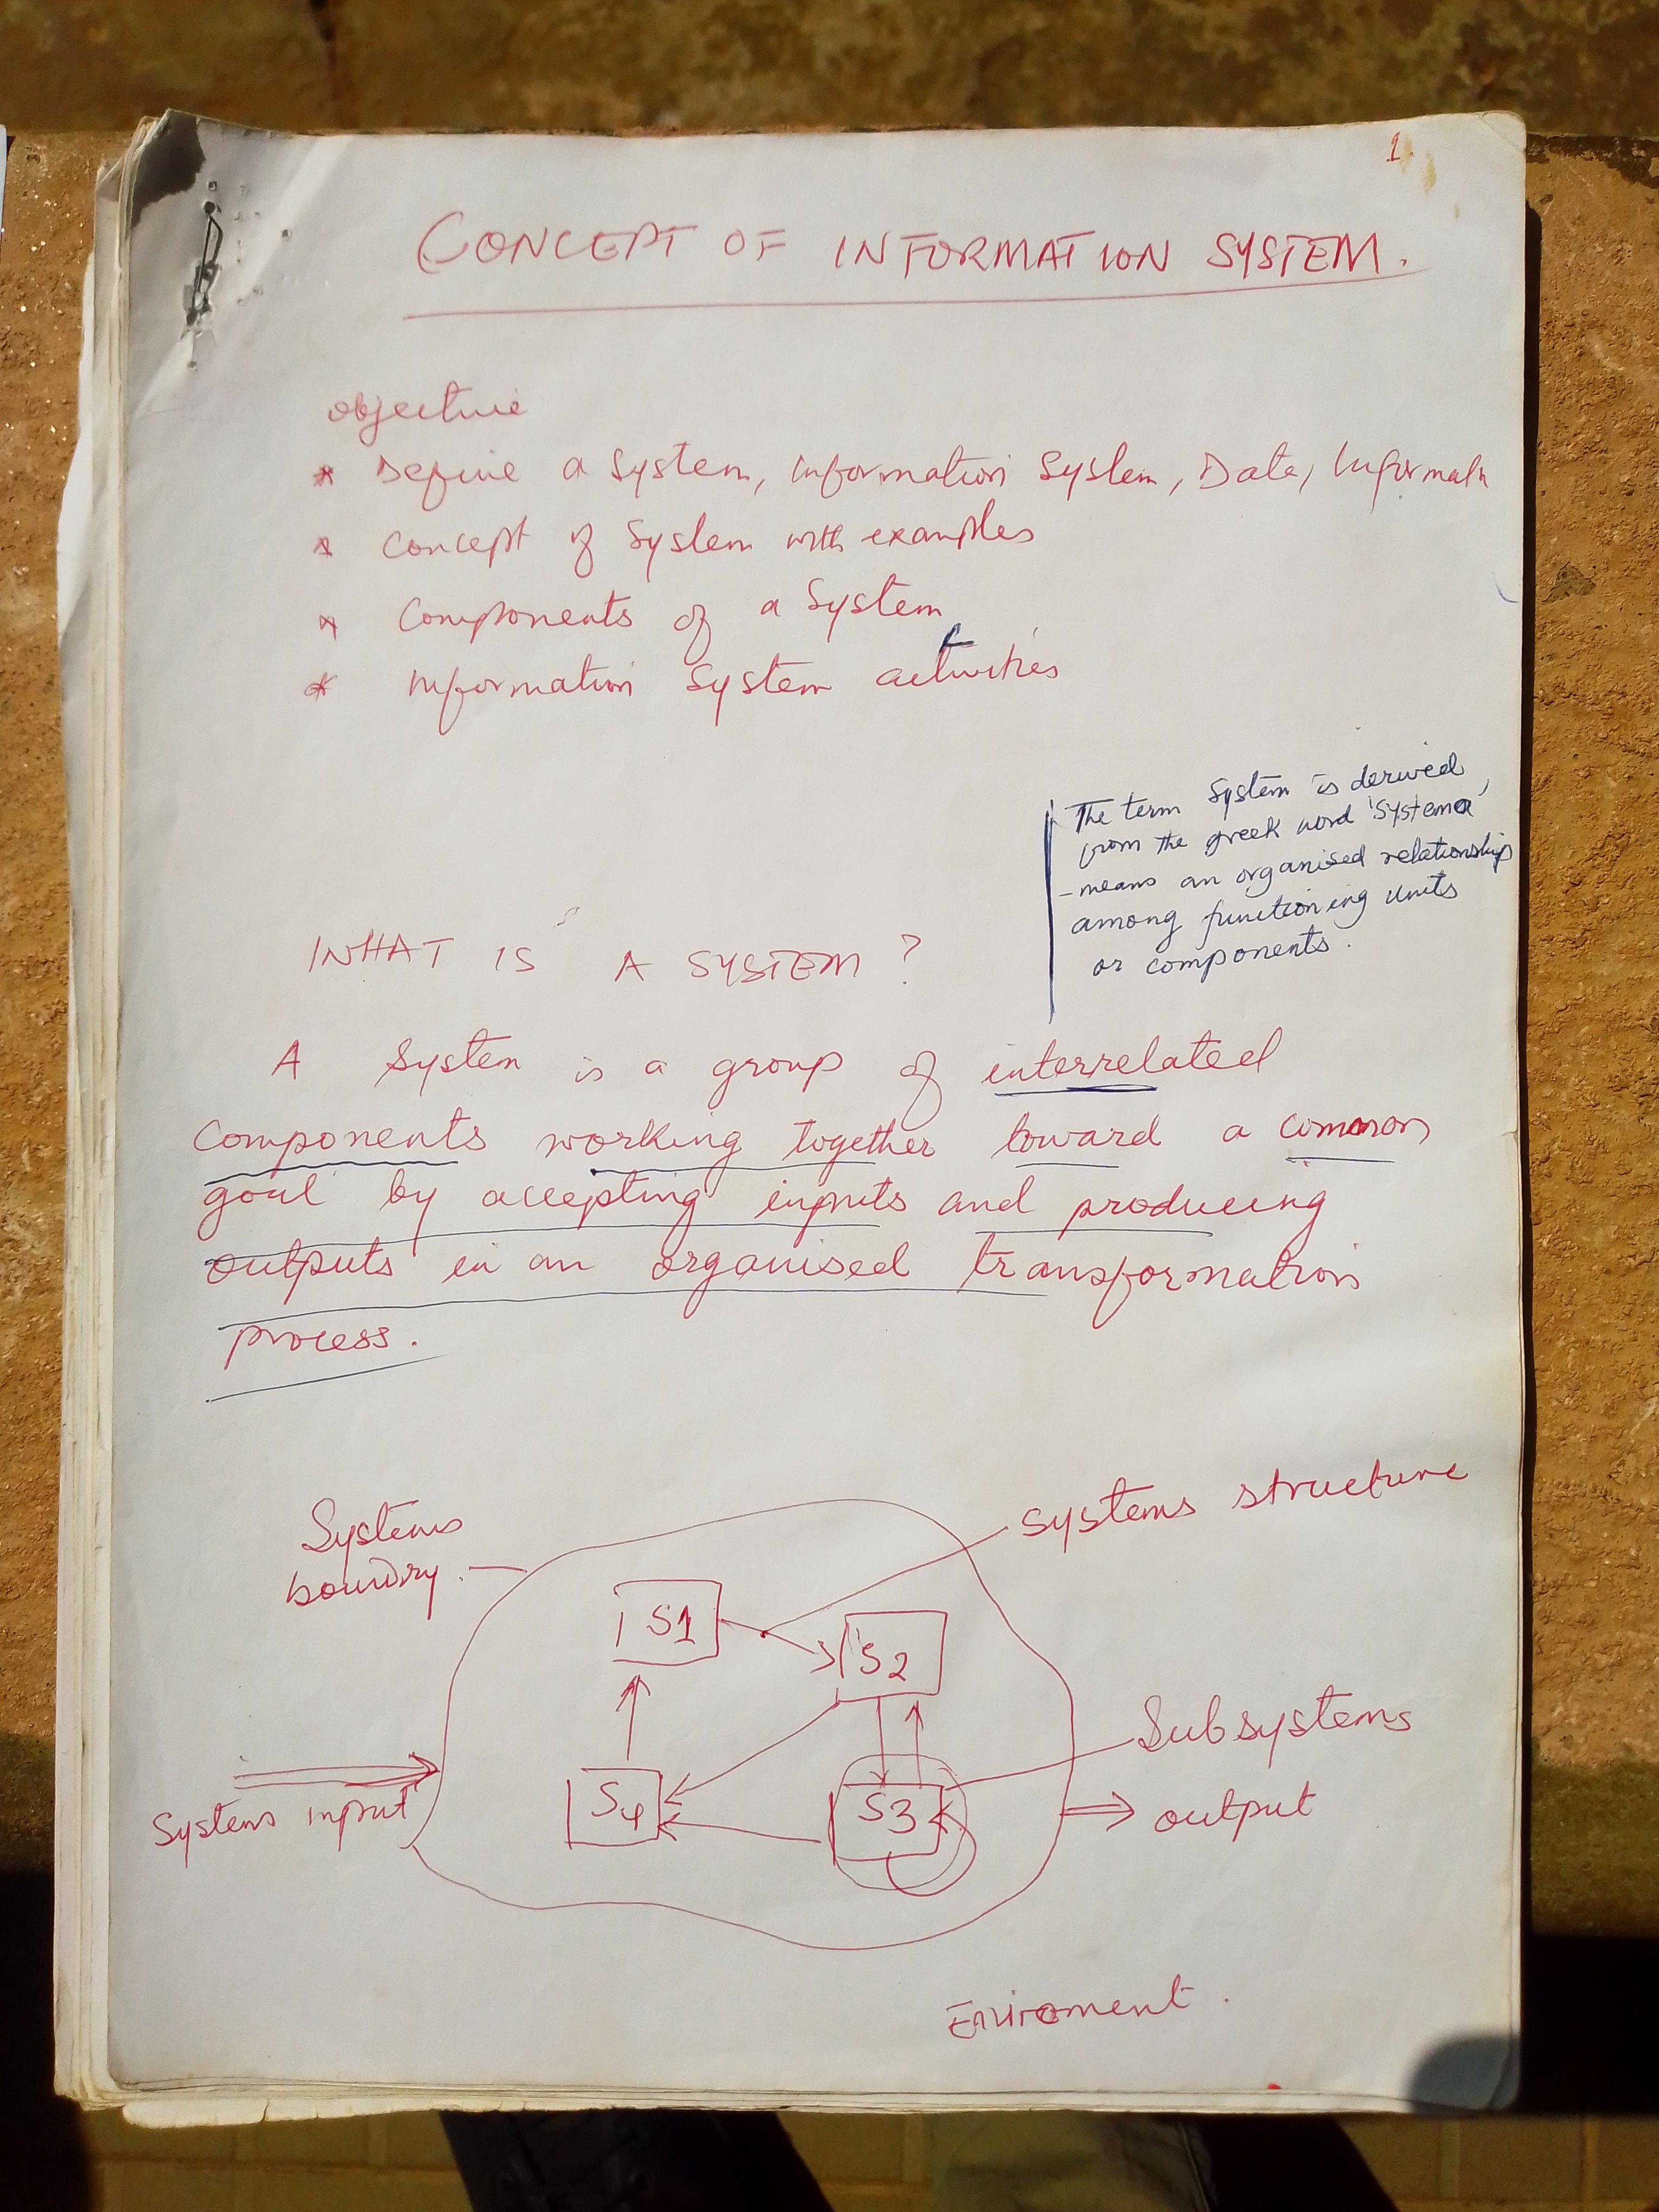 1.
CONCEPT OF INFORMATION SYSTEM.
objective
* Define a System, Information System, Data, Informatn
* Concept of System with examples
* Components of a System
* Information System activities
The term System is derived
from the greek word 'Systema'
- means an organised relationship
among functioning units
or components.
WHAT IS A SYSTEM ?
A System is a group of interrelated
components working together toward a common
goal by accepting inputs and producing
outputs in an organised transformation
process.
Systems structure
Systems
boundry
S1
S2
Subsystems
S4
S3
Systems input
output
Enviroment.